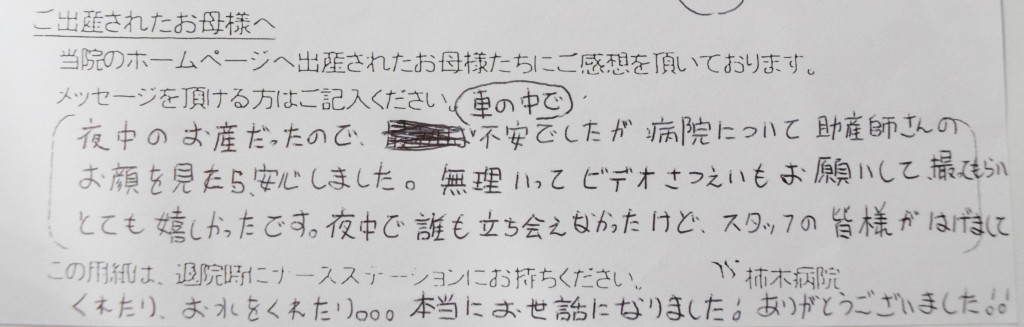 ご出産されたお母様へ
当院のホームページへ出産されたお母様たちにご感想を頂いております。
メッセージを頂ける方はご記入ください。
車の中で
夜中のお産だったので、不安でしたが病院について助産師さんの
お顔を見たら、安心しました。無理いってビデオさつえいもお願いして、撮ってもらい
とても嬉しかったです。夜中で誰も立ち会えなかったけど、スタッフの皆様がはげまして
この用紙は、退院時にナースステーションにお持ちください。 柿木病院
くれたり、お水をくれたり。。。本当にお世話になりました!ありがとうございました!!